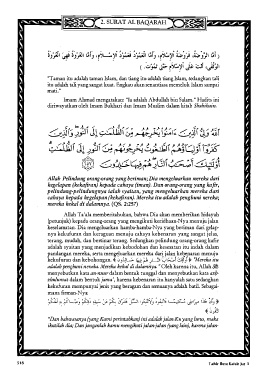 2. SURAT AL BAQARAH
"Taman itu adalah taman Islam, dan tiang itu adalah tiang Islam, sedangkan tali
itu adalah tali yang sangat kuat. Engkau akan senantiasa memeluk Islam sampai
mati."
Imam Ahmad mengatakan: "Ia adalah Abdullah bin Salam." Hadits ini
diriwayatkan oleh Imam Bukhari dan Imam Muslim dalam kitab Shahihain.
اللَّهُ وَلِيُّ الَّذِينَ ءَامَنُوا يُخْرِجُهُم مِّنَ الظُّلُمَاتِ إِلَى النُّورِ وَالَّذِينَ
كَفَرُوا أَوْلِيَاؤُهُمُ الطَّاغُوتُ يُخْرِجُونَهُم مِّنَ النُّورِ إِلَى الظُّلُمَاتِ
أُولَٰئِكَ أَصْحَابُ النَّارِ هُمْ فِيهَا خَالِدُونَ
Allah Pelindung orang-orang yang beriman; Dia mengeluarkan mereka dari
kegelapan (kekafiran) kepada cahaya (iman). Dan orang-orang yang kafir,
pelindung-pelindungnya ialah syaitan, yang mengeluarkan mereka dari
cahaya kepada kegelapan (kekafiran). Mereka itu adalah penghuni neraka;
mereka kekal di dalamnya. (QS. 2:257)
Allah Ta'ala memberitahukan, bahwa Dia akan memberikan hidayah
(petunjuk) kepada orang-orang yang mengikuti keridhaan-Nya menuju jalan
keselamatan. Dia mengeluarkan hamba-hamba-Nya yang beriman dari gelap-
nya kekufuran dan keraguan menuju cahaya kebenaran yang sangat jelas,
terang, mudah, dan bersinar terang. Sedangkan pelindung orang-orang kafir
adalah syaitan yang menjadikan kebodohan dan kesesatan itu indah dalam
pandangan mereka, serta mengeluarkan mereka dari jalan kebenaran menuju
kekufuran dan kebohongan. "Mereka itu
adalah penghuni neraka. Mereka kekal di dalamnya." Oleh karena itu, Allah
menyebutkan kata an-nuur dalam bentuk tunggal dan menyebutkan kata azh-
zhulumat dalam bentuk jama', karena kebenaran itu hanyalah satu sedangkan
kekufuran mempunyai jenis yang beragam dan semuanya adalah batil. Sebagai-
mana firman-Nya:
"Dan bahwasanya (yang Kami perintahkan) ini adalah jalan-Ku yang lurus, maka
ikutilah dia; Dan janganlah kamu mengikuti jalan-jalan (yang lain), karena jalan-
Tafsir Ibnu Katsir Juz 3